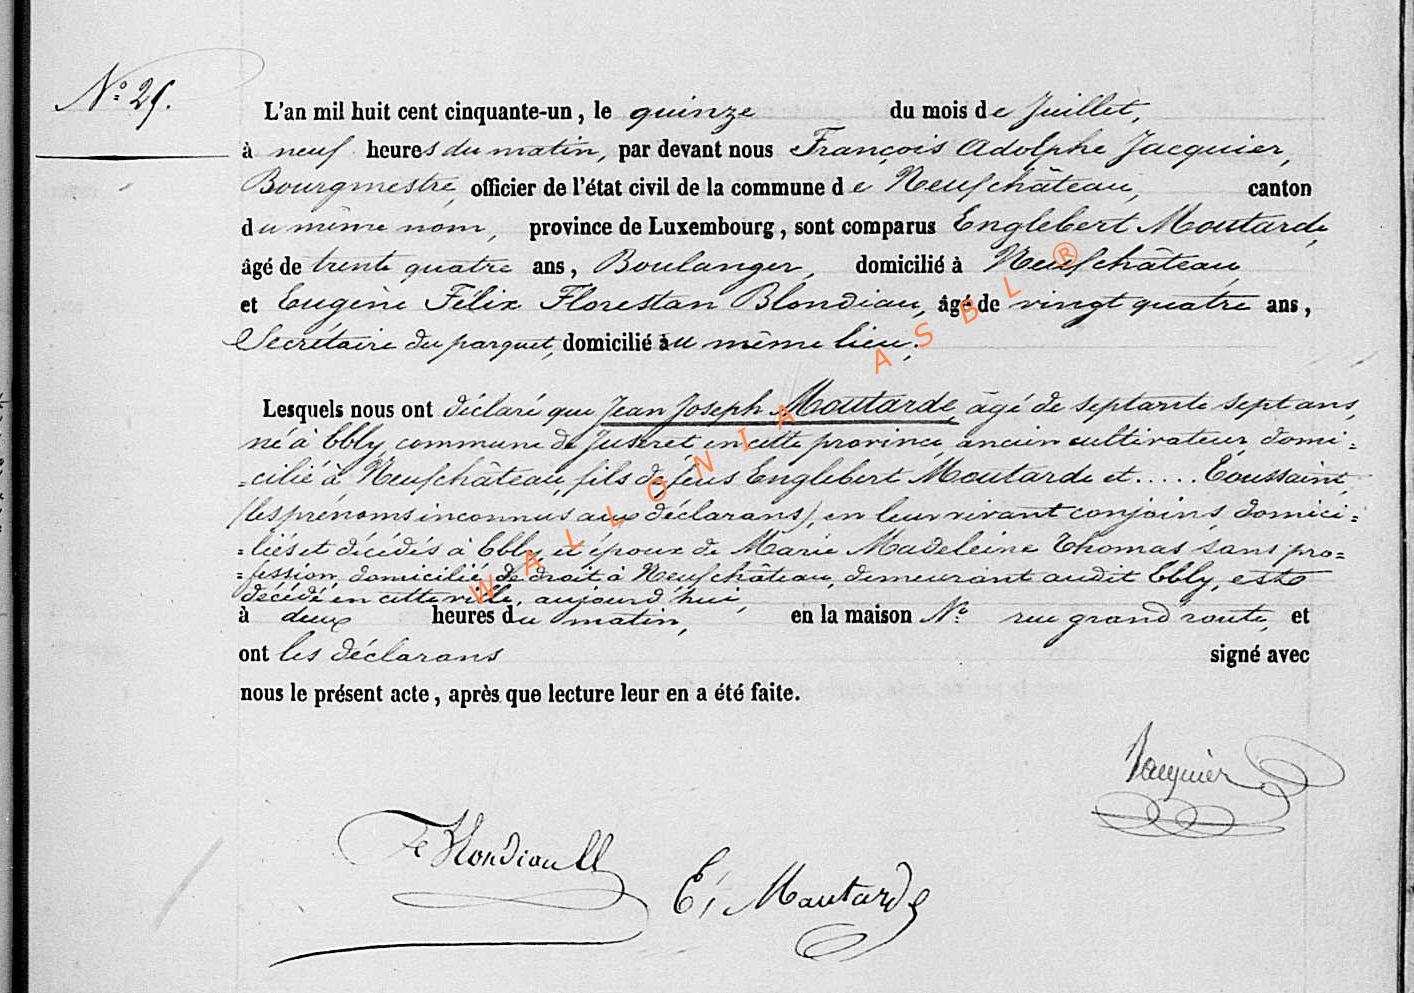 N.° 25.
L'an mil huit cent cinquante-un, le quinze du mois de Juillet,
à neuf heures du matin, par devant nous François Adolphe Jacquier,
Bourgmestre, officier de l'état civil de la commune de Neufchâteau, canton
du même nom, province de Luxembourg, sont comparus Englebert Moutarde,
âgé de trente quatre ans, Boulanger, domicilié à Neufchâteau,
et Eugène Félix Florestan Blondiau, âgé de vingt quatre ans,
Secrétaire du parquet, domicilié au même lieu;
Lesquels nous ont déclaré que Jean Joseph Moutarde, âgé de septante sept ans,
né à Ebly, commune de Juseret en cette province, ancien cultivateur, domi=
=cilié à Neufchâteau, fils de feus Englebert Moutarde et ..... Toussaint,
(les prénoms inconnus aux déclarans), en leur vivant conjoins, domici=
=liés et décédés à Ebly et époux de Marie Madeleine Thomas, sans pro=
=fession, domicilié de droit à Neufchâteau, demeurant audit Ebly, est
décédé en cette ville, aujourd'hui,
à deux heures du matin, en la maison N.° rue grand route, et
ont les déclarans signé avec
nous le présent acte, après que lecture leur en a été faite.
Jacquier
Fx Blondiau
E. Moutarde
WALLONIA ASBL ®